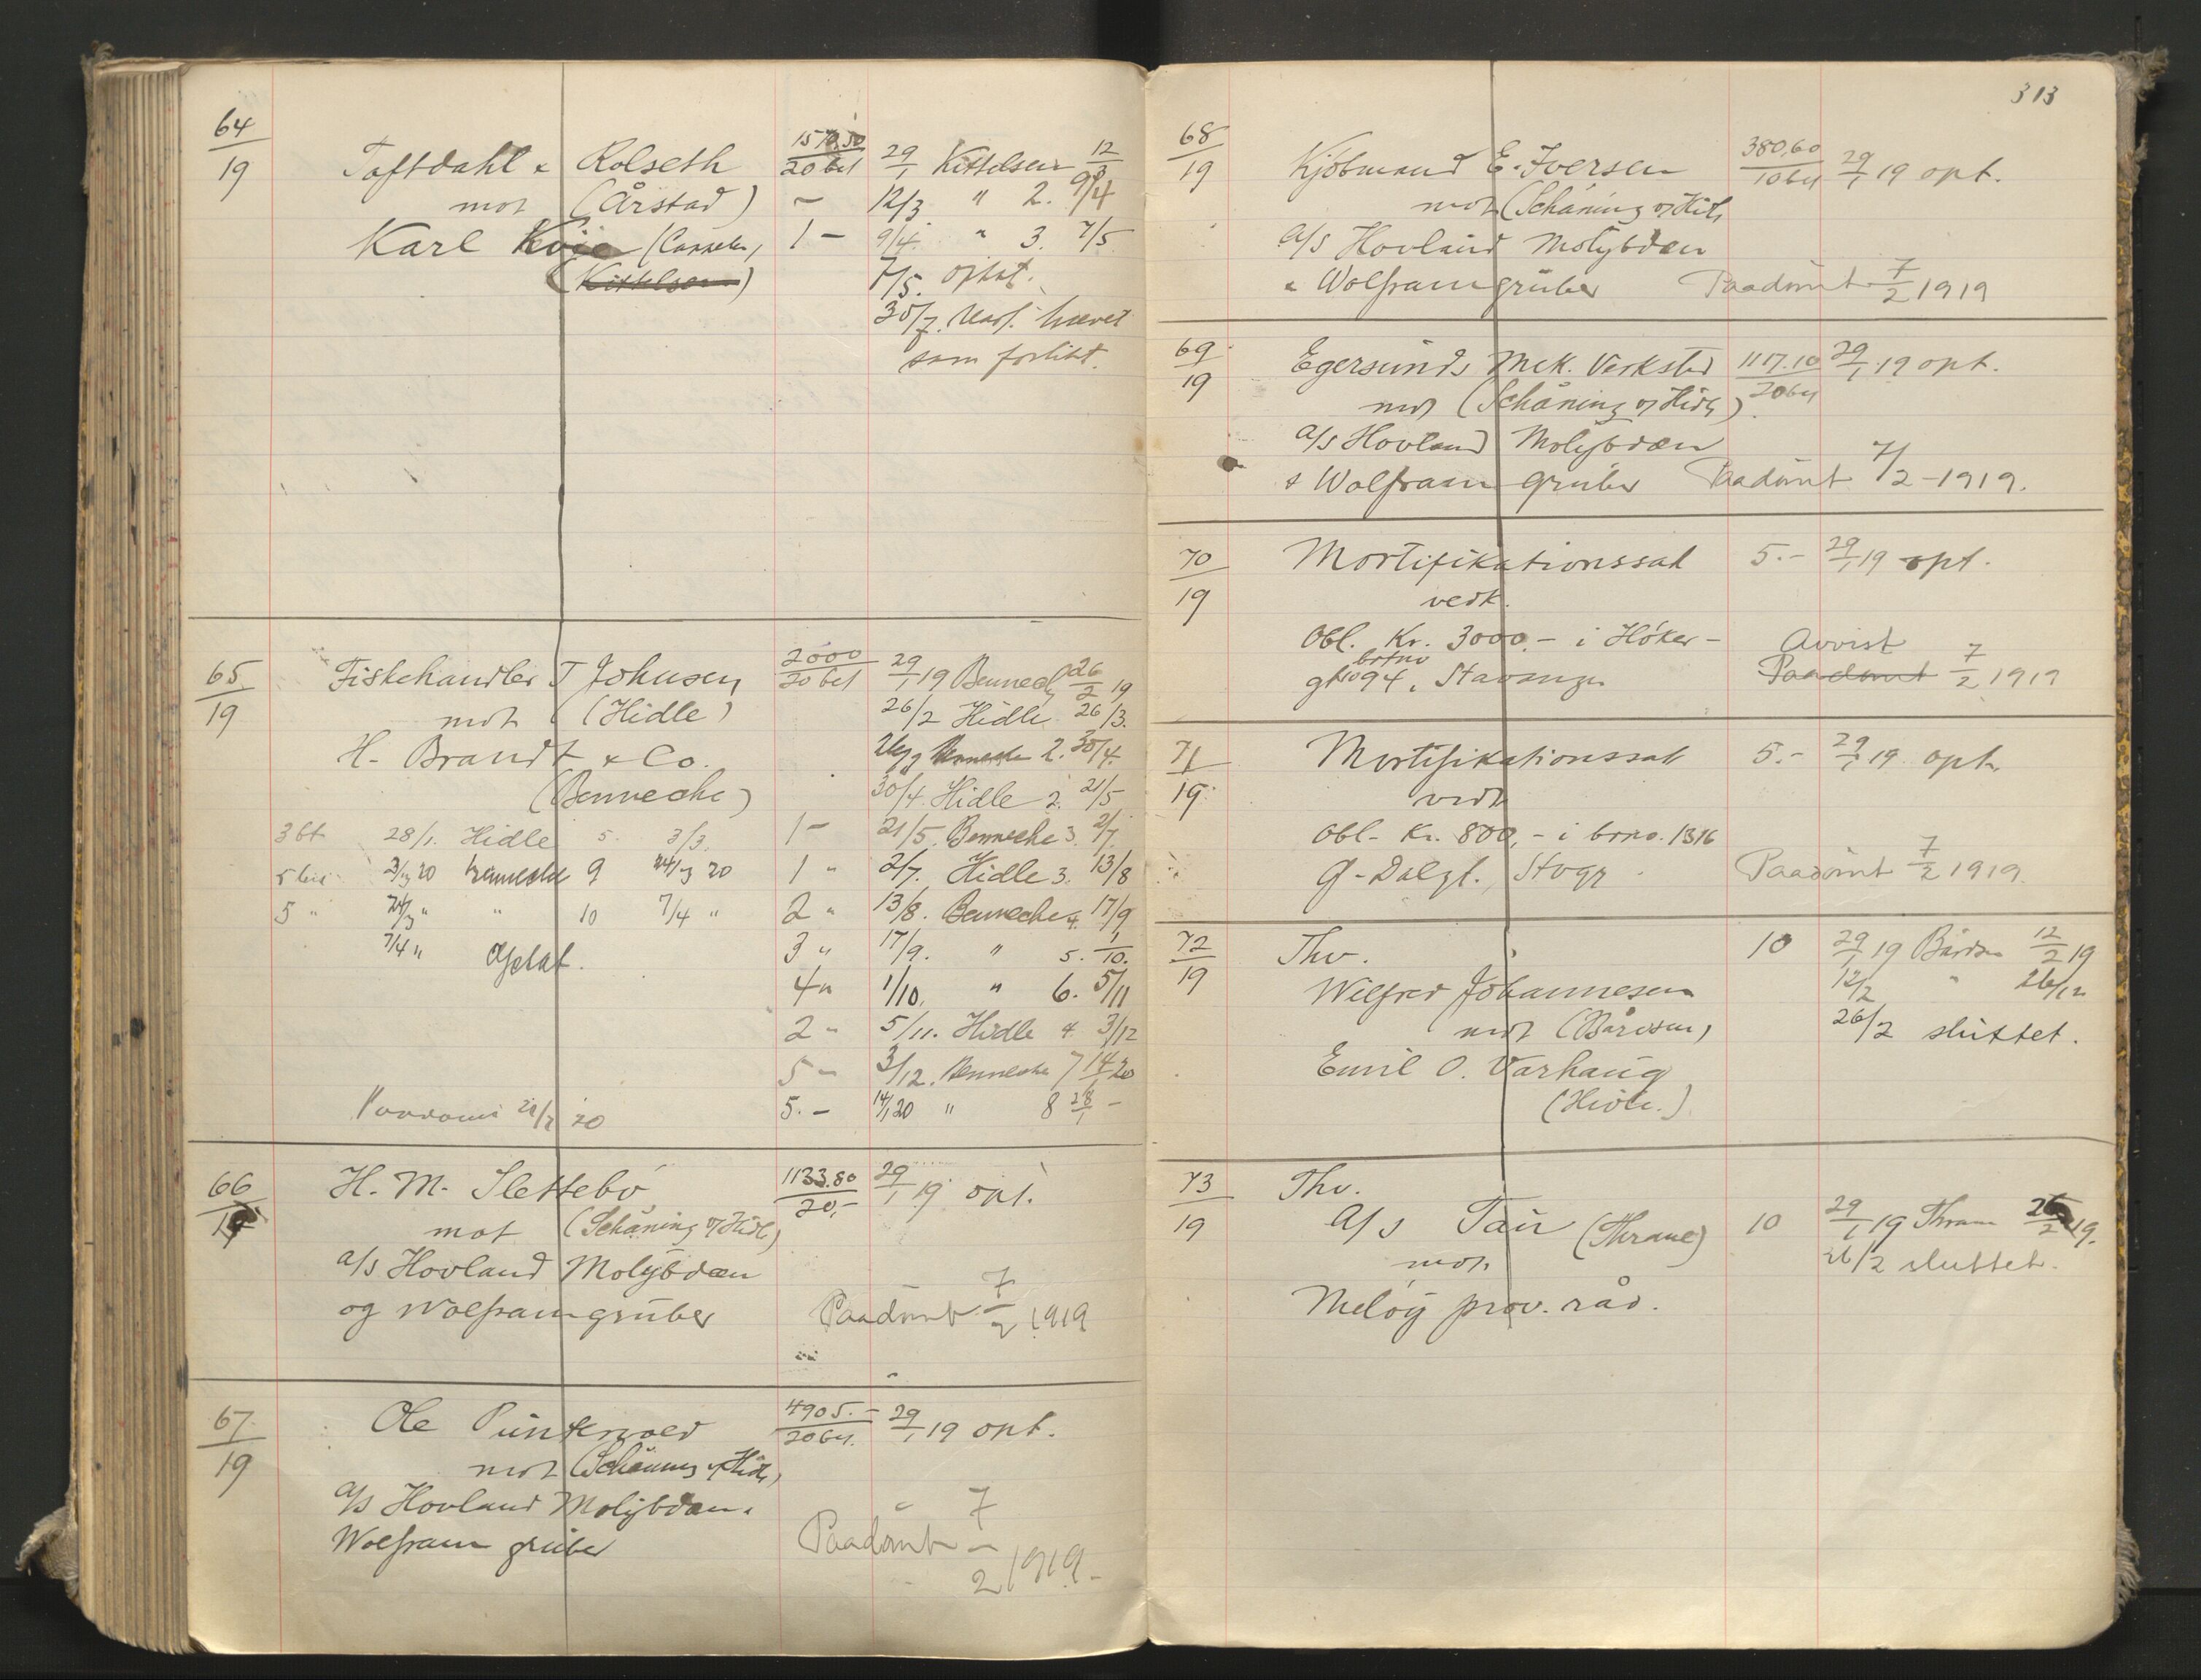 64
19
Toftdahl & Rolseth 20 bet 29/1 Kittelsen 12/3
mot (Årstad) – 12/3 " 2. 9/4
Karl 1 – 9/4 " 3. 7/5
(Kittelsen) 7/5. optat.
30/7. hævet
som forlikt.
65
19
Fiskehandler T Johnsen 2000 / 20 bet 29/1 19 Bennech 26/2 19
mot (Hidle) 26/2 Hidle 26/3.
H. Brandt & Co. Benneche 2. 30/4.
(Benneche) 30/4. Hidle 2. 21/5
3 bt 28/1. Hidle 5. 3/3. 1 – 21/5. Benneche 3. 2/7.
3/3 20 Benneche 9 24/3 20 1 " 2/7. Hidle 3. 13/8
5 " 24/3 " " 10 7/4 " 2 " 13/8. Benneche 4. 17/9
7/4 " Optat. 3 " 17/9. " 5. 1/10.
4 " 1/10. " 6. 5/11
2 " 5/11. Hidle 4 3/12
5 – 3/12. Benneche 7 14/1 20
20 5. – 14/1 20 " 8 28/1 –
66
19
H. M. Slettebö 1133.80 / 20,– 29/1 19 opt.
mot (Schåning og Hidle)
A/s Hovland Molybdæn
og Wolframgruber Paadömt 7/2 1919
67
19
Ole 4905.– / 20 bet. 29/1 19 opt.
mot (Schåning og Hidle)
A/s Hovland Molybdæn &
Wolfram gruber Paadömt 7/2 1919.
313
68
19
Kjöbmand E. Iversen 380,60 / 10 bet 29/1 19 opt.
mot (Schåning og Hidle
A/s Hovland Molybdæn
& Wolframgruber Paadömt 7/2 1919
69
19
Egersunds Mek. Verksted 1117.10 / 20 bet 29/1 19 opt.
mot (Schåning og Hidle)
A/s Hovland Molybdæn
& Wolfram gruber Paadömt 7/2 – 1919.
70
19
Mortifikationssak 5.– 29/1 19 opt.
vedk.
Obl. Kr. 3000,– i Höker– Avvist
gt 94, Stavanger Paadömt 7/2 1919
71
19
Mortifikationssak 5.– 29/1 19 opt.
vedk
Obl. Kr. 800,– i brno. 1316
Ø. Dalgt., Stvgr Paadömt 7/2 1919.
72
19
Thv. 10 29/1 19 Bårdsen 12/2 19
Wilfred Johannesen 12/2 "
mot (Bårdsen) 26/2 sluttet.
Emil O. Varhaug
(Hidle.)
73
19
Thv.
A/s Tau (Thrane) 10 29/1 19 Thrane 26/2 19.
mot. 26/2 sluttet.
Melöy prov. råd.